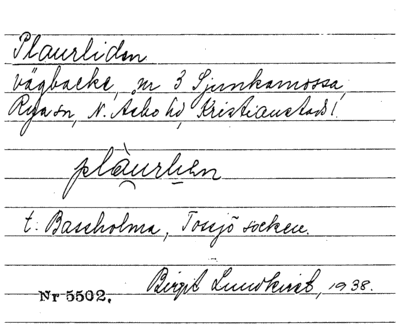 Plaurliden
vägbacke, nr 3 Sjunkamossa,
Rya sn, N. Åsbo hd, Kristianstads l.
plàurlien
t. Bassholma, Tossjö socken.
Birgit Lundkvist, 1938.
Nr 5502.